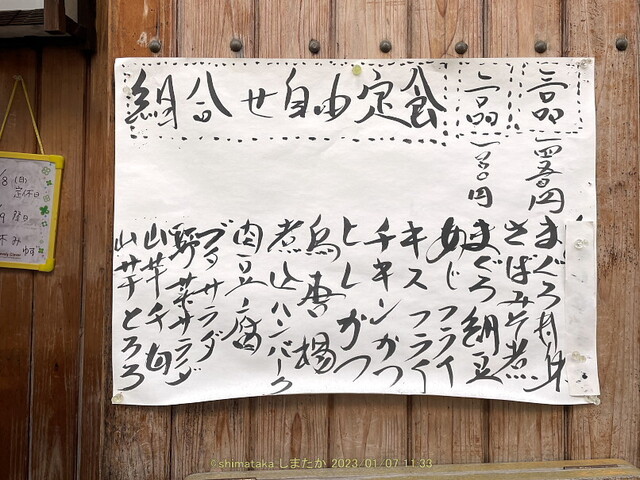 組合せ自由定食
二品
三品
まぐろ刺身
さばみそ煮
まぐろ納豆
あじフライ
キスフライ
チキンかつ
ヒレかつ
鳥唐揚
煮込ハンバーグ
肉豆腐
サラダ
野菜サラダ
山芋千切
山芋とろろ
/8(日)
定休日
/9 祭日
休み
©shimataka しまたか 2023/01/07 11:33